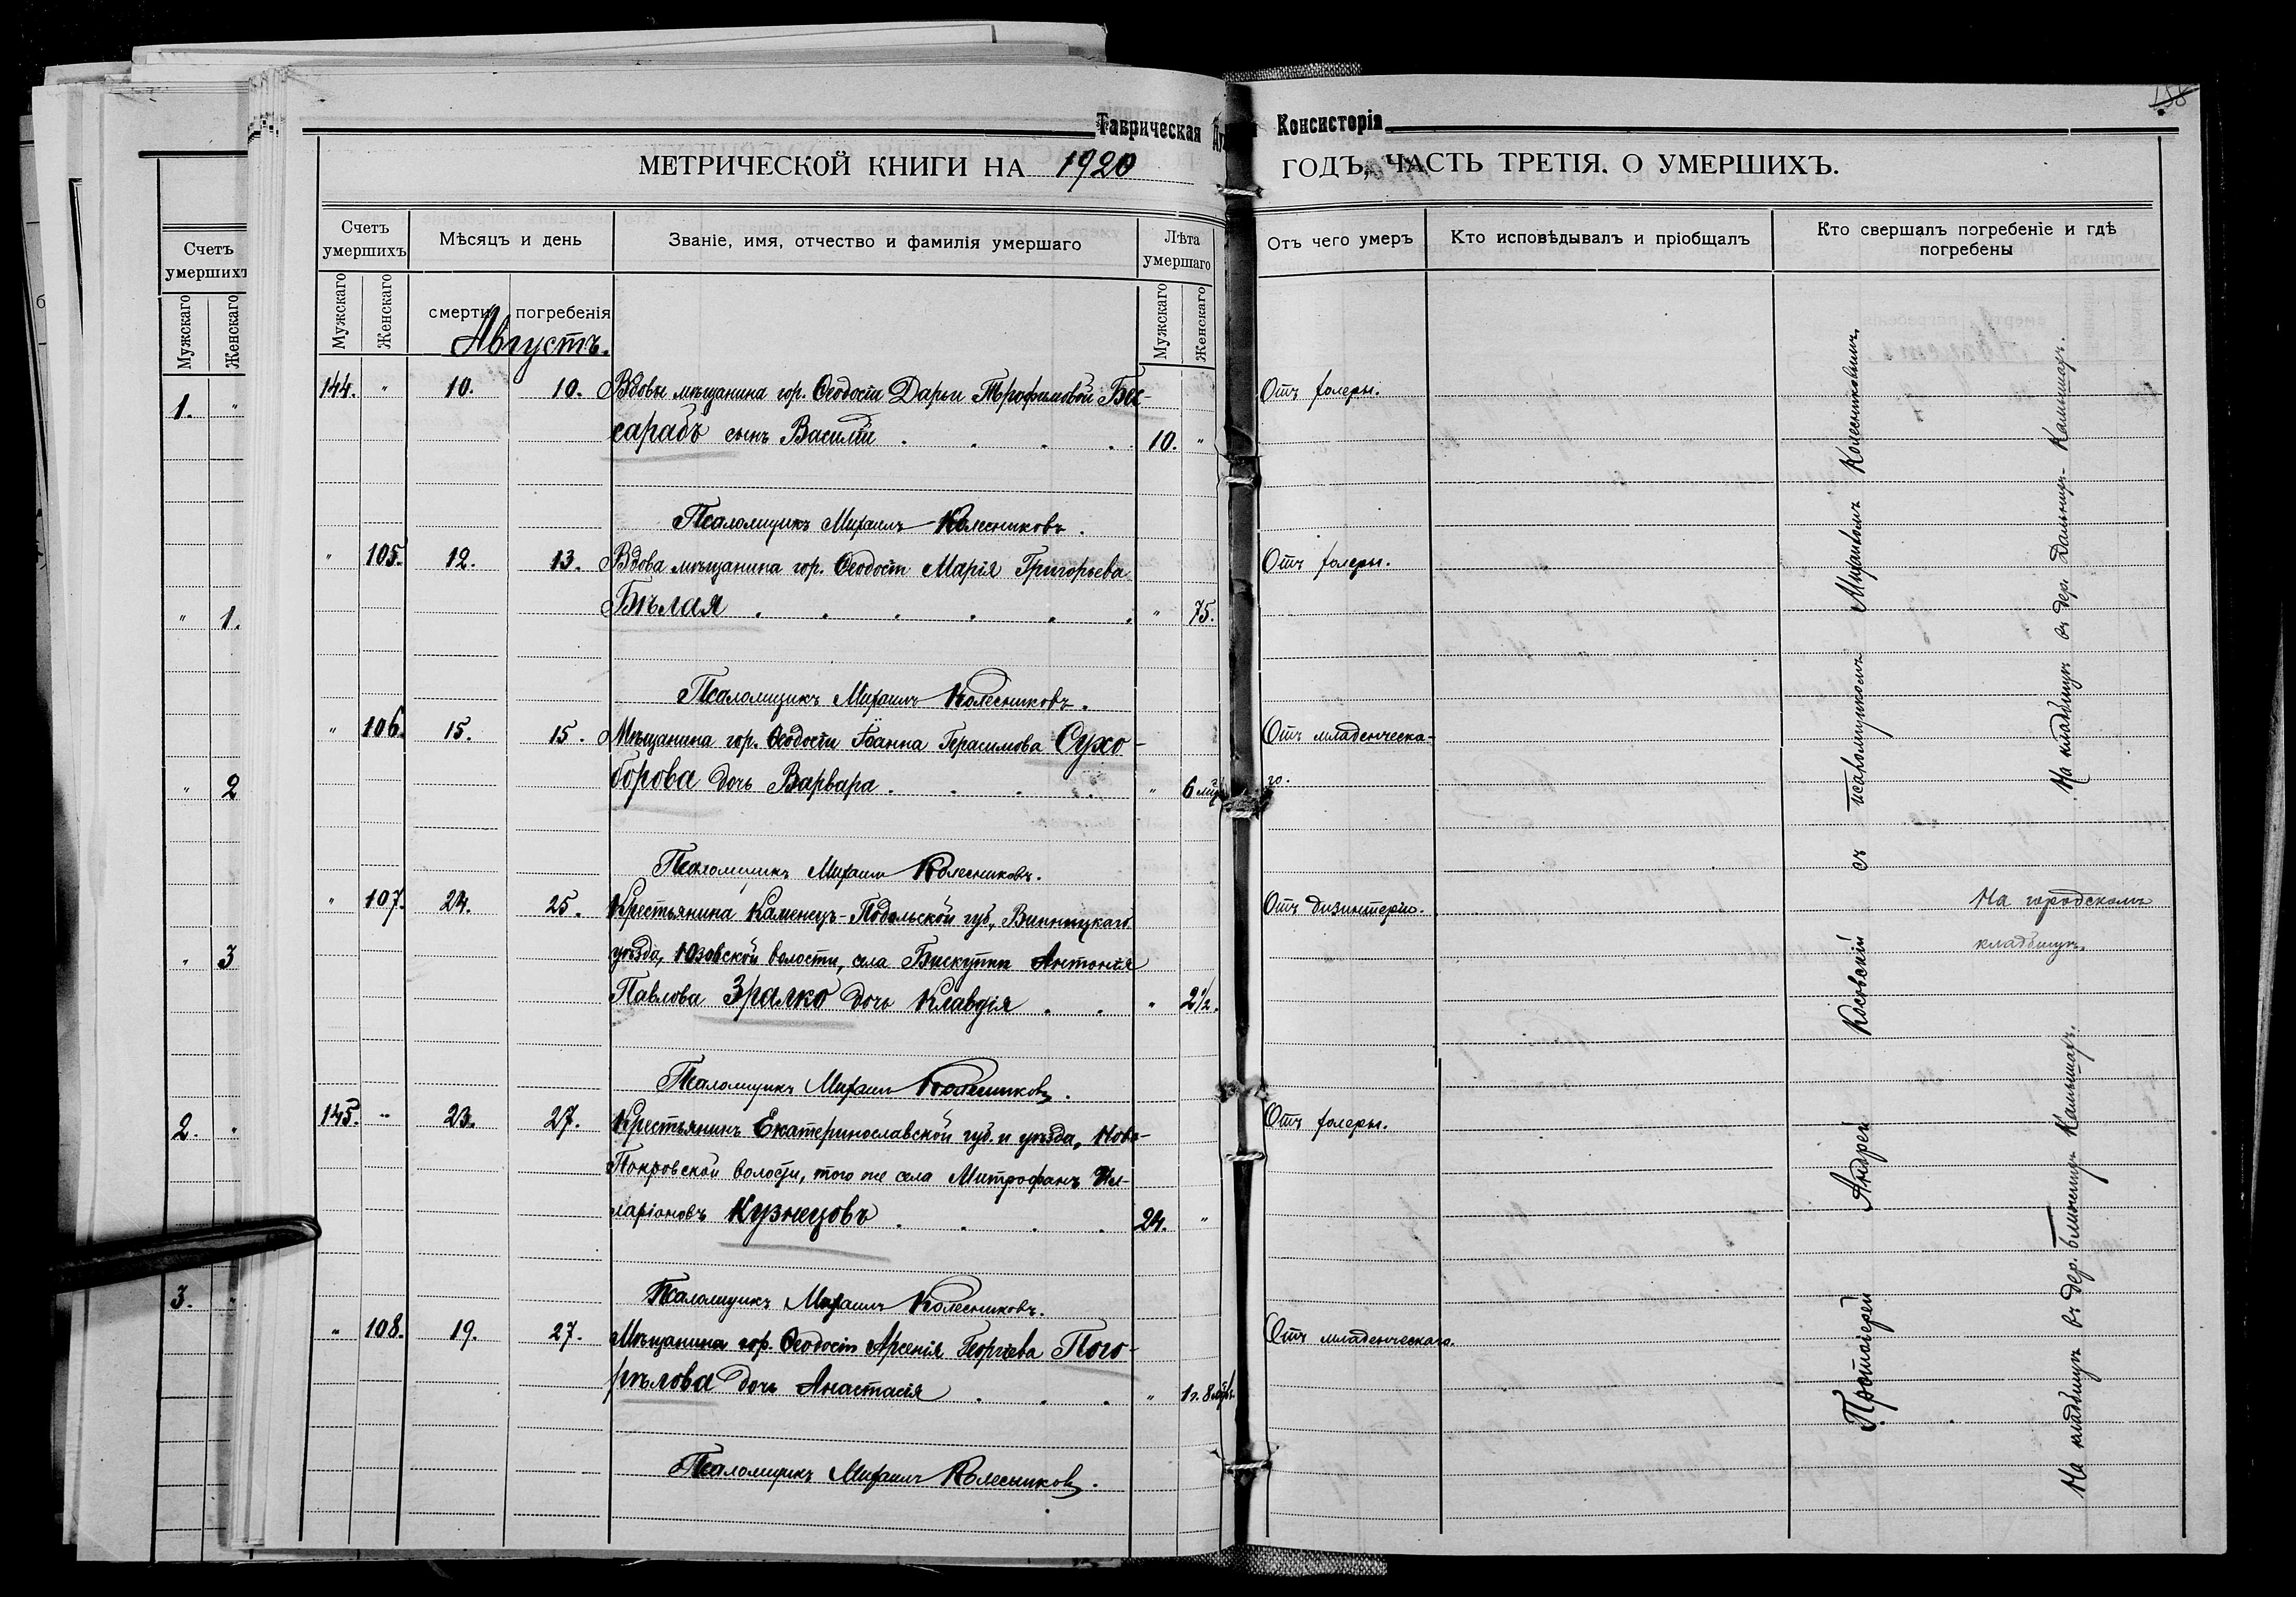 158
Таврическая Ду Консисторія
МЕТРИЧЕСКОЙ КНИГИ НА 1920 ГОДЪ, ЧАСТЬ ТРЕТІЯ. О УМЕРШИХЪ.
Счетъ умершихъ
Мужскаго
Женскаго
1. "
" 1.
" 2
" 3
2. "
3. "
Счетъ умершихъ
Мѣсяцъ и день
Званіе, имя, отчество и фамилія умершаго
Лѣта умершаго
Отъ чего умеръ
Кто исповѣдывалъ и пріобщалъ
Кто свершалъ погребеніе и гдѣ погребены
Мужскаго
Женскаго
смерти
погребенія
Мужскаго
Женскаго
Августъ.
144. " 10. 10. Вдовы мѣщанина гор. Ѳеодосіи Дарьи Трофимовой Бес-
Отъ холеры.
сарабъ сынъ Василій . . . . 10. "
Псаломщикъ Михаилъ Колесниковъ.
" 105. 12. 13. Вдова мѣщанина гор. Ѳеодосіи Марія Григорьева
Отъ холеры.
Бѣлая . . . . . . " 75.
Псаломщикъ Михаилъ Колесниковъ.
" 106. 15. 15. Мѣщанина гор. Ѳеодосіи Іоанна Герасимова Сухо-
Отъ младенческа-
борова дочь Варвара . . . . " 6 мѣс
го.
Псаломщикъ Михаилъ Колесниковъ.
" 107. 24. 25. Крестьянина Каменецъ-Подольской губ., Винницкаго
Отъ дизинтеріи.
уѣзда, Юзовской волости, села Бискупки Антонія
Павлова Зралко дочь Клавдія . . " 2½.
Псаломщикъ Михаилъ Колесниковъ.
145. " 23. 27. Крестьянинъ Екатеринославской губ. и уѣзда, Ново-
Отъ холеры.
Покровской волости, того же села Митрофанъ Ил-
ларіоновъ Кузнецовъ . . . . 24. "
Псаломщикъ Михаилъ Колесниковъ.
" 108. 19. 27. Мѣщанина гор. Ѳеодосіи Арсенія Георгіева Пого-
Отъ младенческаго.
рѣлова дочь Анастасія . . . " 1 г. 8 мѣс.
Псаломщикъ Михаилъ Колесниковъ.
Протоіерей Андрей Косовскій съ псаломщикомъ Михаиломъ Колесниковымъ.
На кладбищѣ въ дер. Дальнихъ Камышахъ.
На городскомъ
кладбищѣ.
На кладбищѣ въ дер. Ближнихъ Камышахъ.